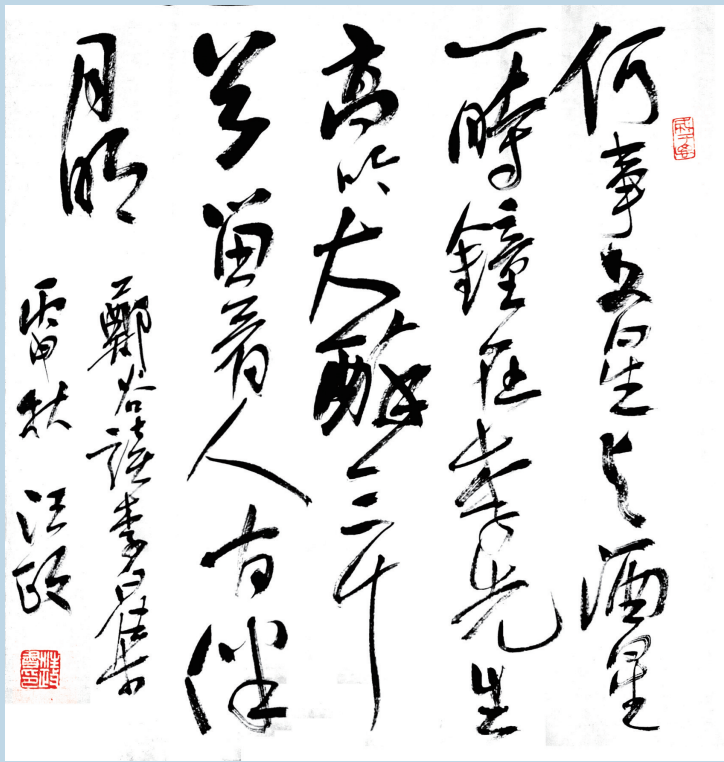 何事文星与酒星
一時鐘在李先生
高吟大醉三千
首留着人间伴
月明
鄭谷读李白集
秋 汪政